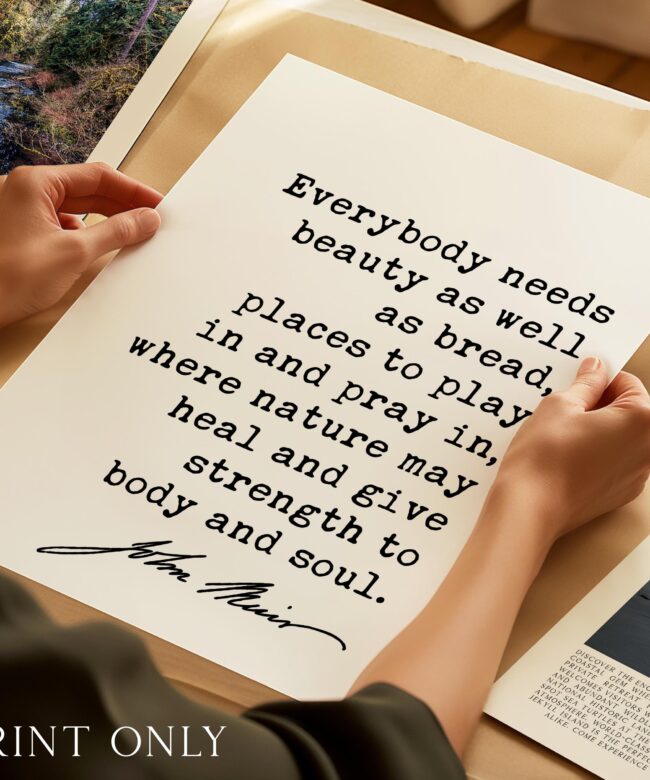 Everybody needs
beauty as well
as bread,
places to play
in and pray in,
where nature may
heal and give
strength to
body and soul.
John Muir
DISCOVER THE
COASTAL GEM
PRIVATE RETREAT
WELCOMES VISITORS
AND ABUNDANT
NATIONAL HISTORIC
SPOT SEA TURTLES AT THE
ATMOSPHERE, WORLD-CLASS
JEKYLL ISLAND IS THE
ALIKE. COME EXPERIENCE
RINT ONLY